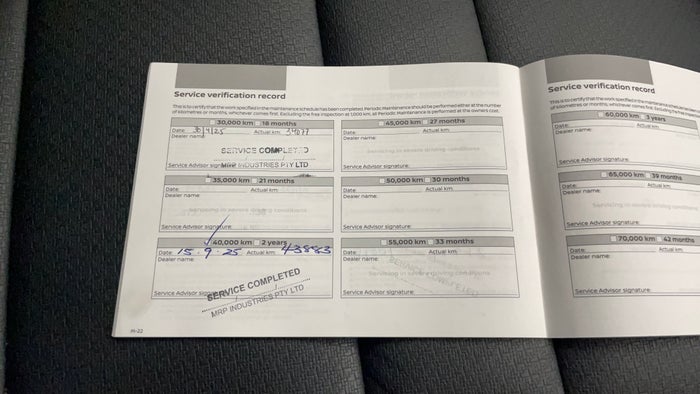 Service verification record
This is to certify that the work specified in the maintenance schedule has been completed. Periodic Maintenance should be performed either at the number
of kilometres or months, whichever comes first. Excluding the free inspection at 1,000 km, all Periodic Maintenance is performed at the owners cost.
30,000 km 18 months
Date: 30/4/25 Actual km: 34077
Dealer name:
SERVICE COMPLETED
Service Advisor signature:
MRP INDUSTRIES PTY LTD
35,000 km 21 months
Date: Actual km:
Dealer name:
Servicing in severe driving conditions
Service Advisor signature:
40,000 km 2 years
Date: 15.9.25 Actual km:
Dealer name:
SERVICE COMPLETED
Service Advisor
MRP INDUSTRIES PTY LTD
45,000 km 27 months
Date: Actual km:
Dealer name:
Servicing in severe driving conditions
Service Advisor signature:
50,000 km 30 months
Date: Actual km:
Dealer name:
Service Advisor signature:
55,000 km 33 months
Date: Actual km:
Dealer name:
Servicing in severe driving conditions
Service Advisor signature:
M-22
Service verification record
This is to certify that the work specified in the maintenance
of kilometres or months, whichever comes first. Excluding the free
60,000 km 3 years
Date: Actual km:
Dealer name:
Service Advisor signature:
65,000 km 39 months
Date: Actual km:
Dealer name:
Servicing in severe driving
Service Advisor signature:
70,000 km 42 months
Date: Actual km:
Dealer name:
Service Advisor signature: